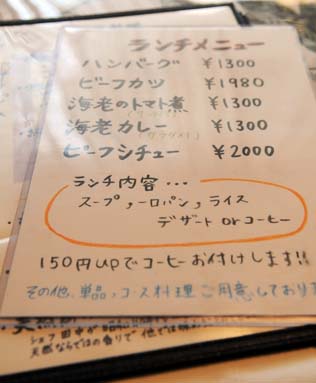 ランチメニュー
ハンバーグ ¥1300
ビーフカツ ¥1980
海老のトマト煮 ¥1300
海老カレー ¥1300
ビーフシチュー ¥2000
ランチ内容...
スープ,一口パン,ライス
デザート orコーヒー
150円upでコーヒーお付けします!!
その他、単品,コース料理ご用意しており
シェフ 田中が
天然ならではの香りで 他では